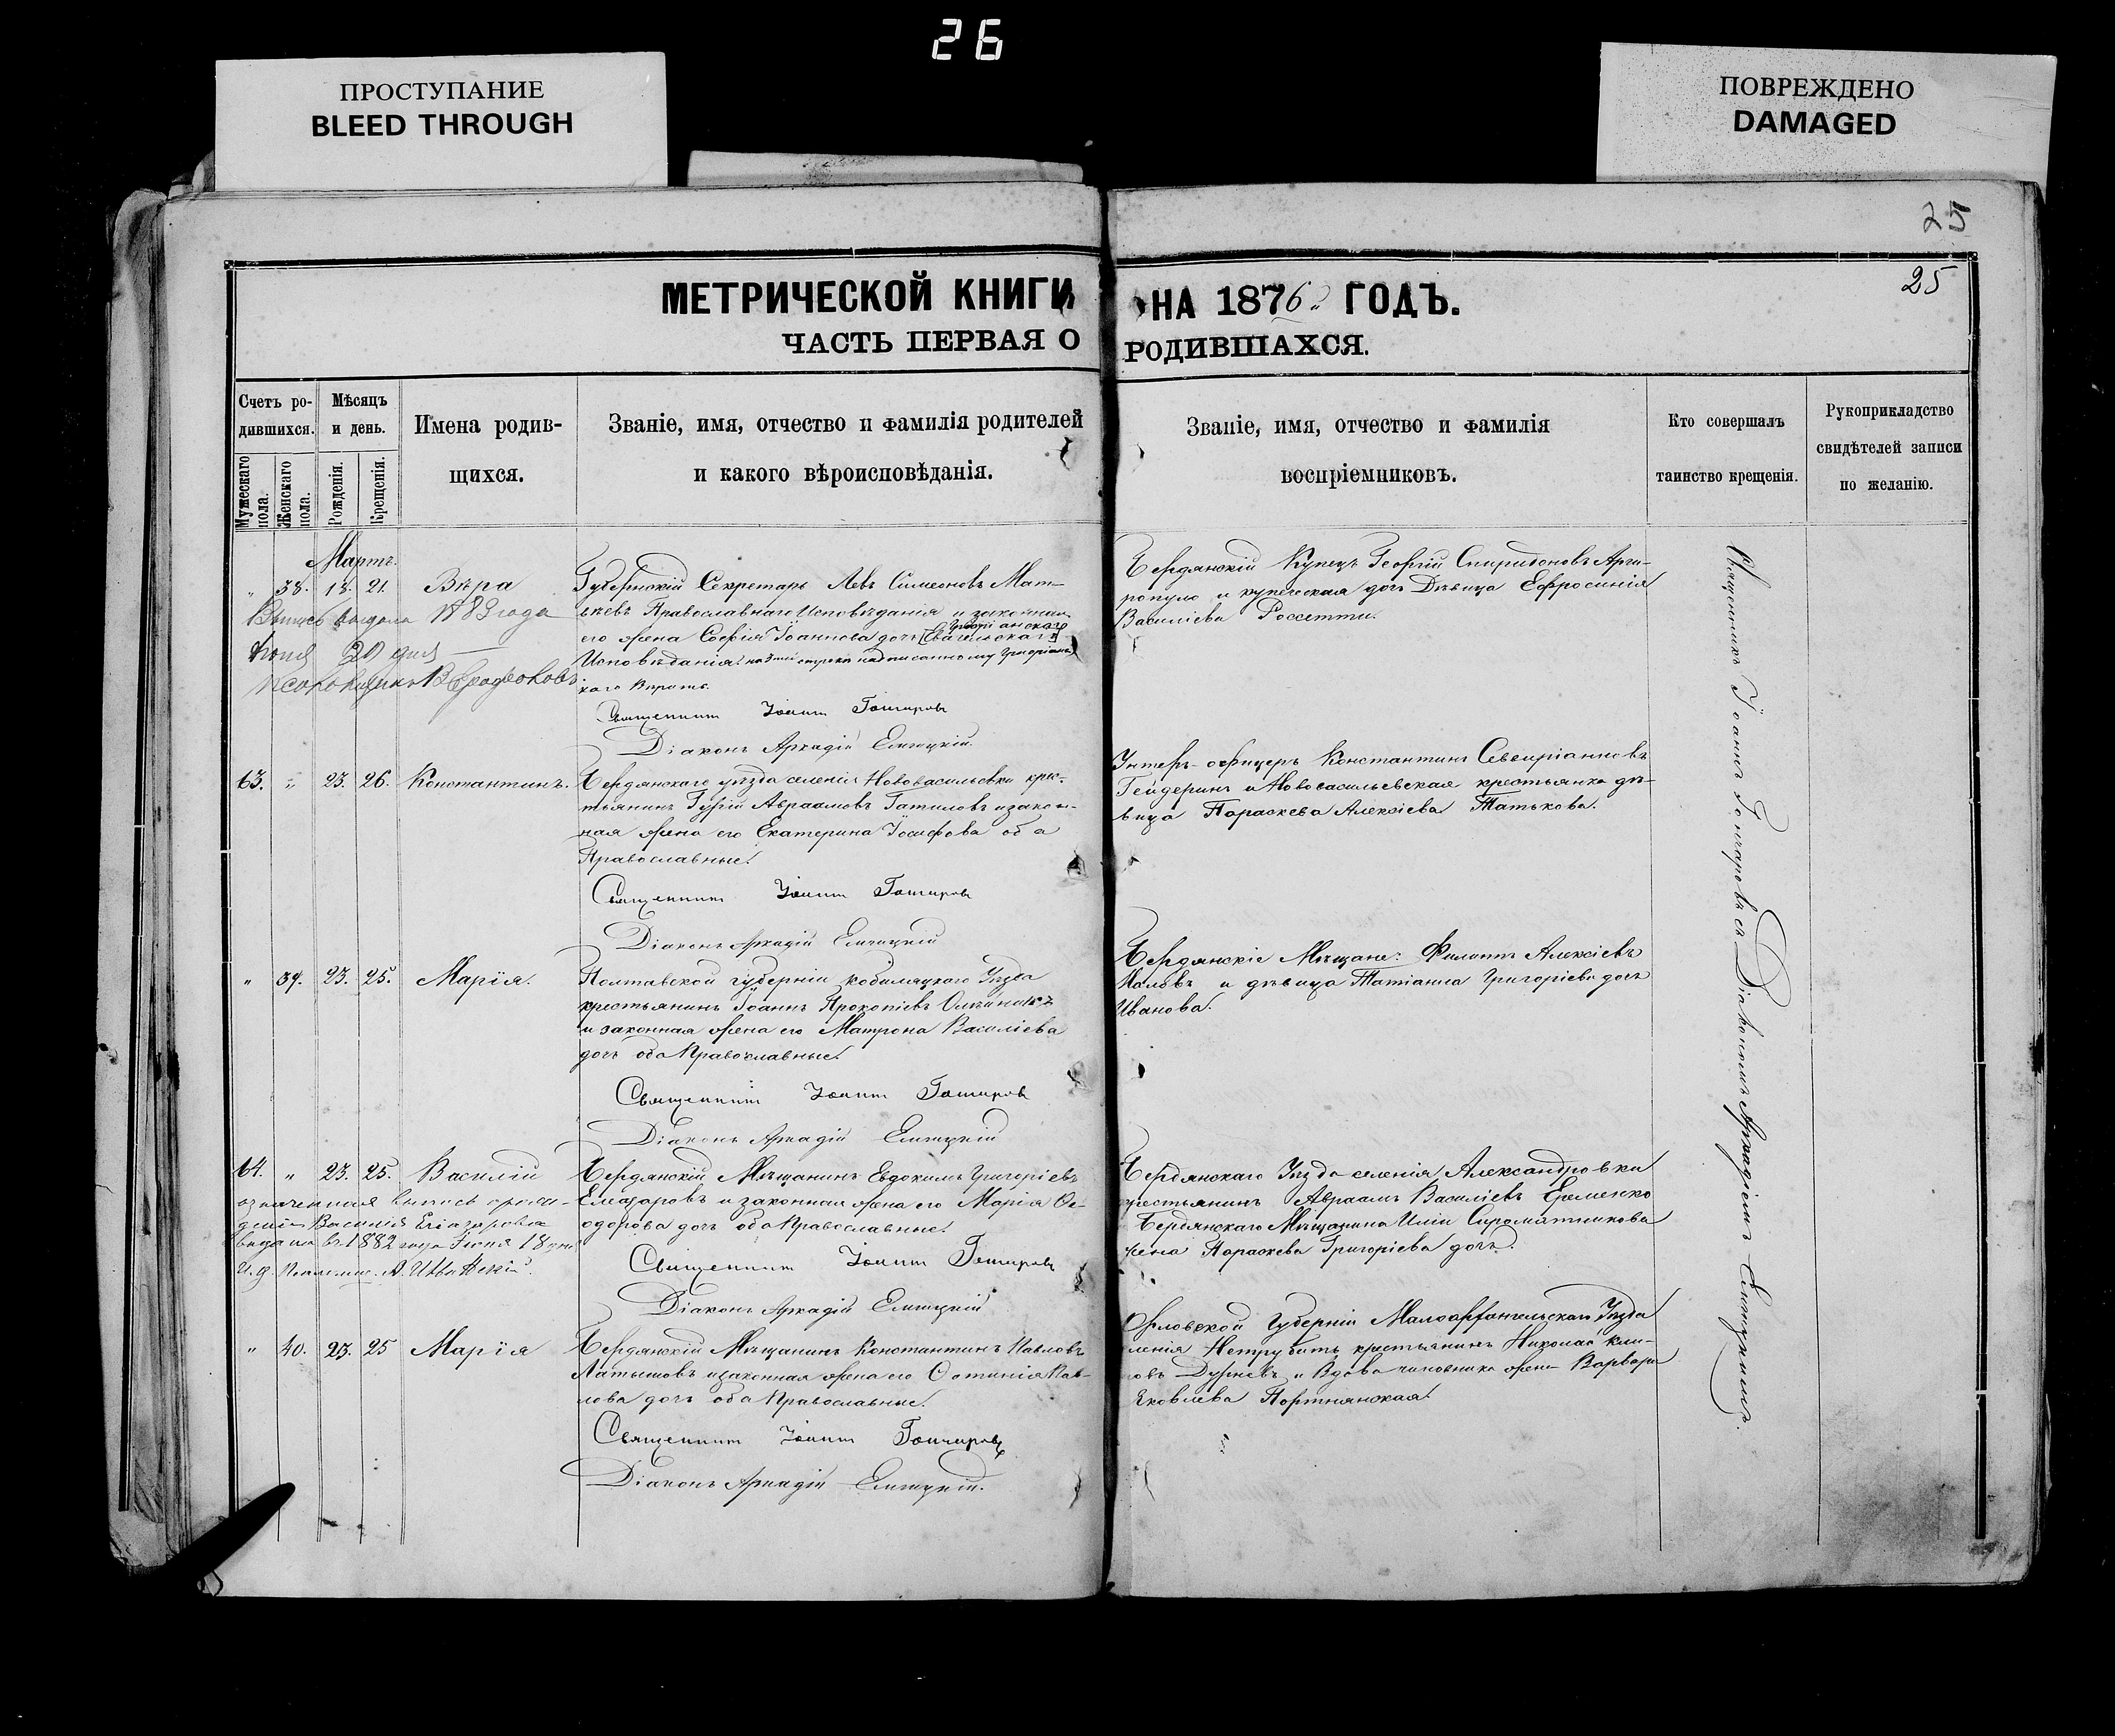 26
ПРОСТУПАНИЕ
BLEED THROUGH
ПОВРЕЖДЕНО
DAMAGED
25
25
МЕТРИЧЕСКОЙ КНИГИ НА 1876 ГОДЪ.
ЧАСТЬ ПЕРВАЯ О РОДИВШАХСЯ.
Счетъ ро-
дившихся.
Мужескаго пола.
Женскаго пола.
Мѣсяцъ
и день.
Рожденія.
Крещенія.
Имена родив-
щихся.
Званіе, имя, отчество и фамилія родителей
и какого вѣроисповѣданія.
Званіе, имя, отчество и фамилія
воспріемниковъ.
Кто совершалъ
таинство крещенія.
Рукоприкладство
свидѣтелей записи
по желанію.
Мартъ.
" 38. 13. 21. Вѣра
Губернскій Секретарь Левъ Симеоновъ Мат-
ѣевъ Православнаго Исповѣданія и законная
его жена Софія Іоаннова дочь
Исповѣданія: на строкѣ надписанному
кого вѣрить.
Священникъ Іоаннъ Гончаровъ
Діаконъ Аркадій Елицкій.
Выпись выдана 1883 года
20 дня
Бердянскій Купецъ Георгій Спиридоновъ Арги-
ропуло и купеческая дочь Дѣвица Ефросинія
Василіева Россетти.
63. " 23. 26. Константинъ.
Бердянскаго уѣзда селенія Нововасильевки крес-
тьянинъ Гурій Авраамовъ Гатиловъ и закон-
ная жена его Екатерина Іосифова оба
Православные.
Священникъ Іоаннъ Гончаровъ
Діаконъ Аркадій Елицкій
Унтеръ-офицеръ Константинъ Севиріановъ
Гейдеринъ и Нововасильевская крестьянка дѣ-
вица Параскева Алексіева Татькова.
" 39. 23. 25. Марія.
Полтавской губерніи Кобиляцкого Уѣзда
крестьянинъ Іоаннъ Прокопіевъ
и законная жена его Матрона Василіева
дочь оба Православные.
Священникъ Іоаннъ Гончаровъ
Діаконъ Аркадій Елицкій
Бердянскіе Мѣщане: Филиппъ Алексіевъ
и дѣвица Татіанна Григоріева дочь
Иванова.
64. " 23. 25. Василій
Бердянскій Мѣщанинъ Евдокимъ Григоріевъ
Елеазаровъ и законная жена его Марія Ѳе-
одорова дочь оба Православные.
Священникъ Іоаннъ Гончаровъ
Діаконъ Аркадій Елицкій
означенная выпись о рож-
деніи Василія Еліазарова
выдана въ 1882 года Іюня 18 дня
Бердянскаго Уѣзда селенія Александровки
крестьянинъ Авраамъ Василіевъ Еременко
Бердянскаго Мѣщанина Иліи Сыромятникова
жена Параскева Григоріева дочь.
" 40. 23. 25 Марія
Бердянскій Мѣщанинъ Константинъ Павловъ
Латышовъ и законная жена его Фотинія Пав-
лова дочь оба Православные.
Священникъ Іоаннъ Гончаровъ
Діаконъ Аркадій Елицкій.
Орловской Губерніи Малоархангельскаго Уѣзда
крестьянинъ Николай
Дурневъ и Вдова чиновника жена Варвара
Яковлева Портнянская.
Священникъ Іоаннъ Гончаровъ съ Діакономъ Аркадіемъ Елицкимъ.